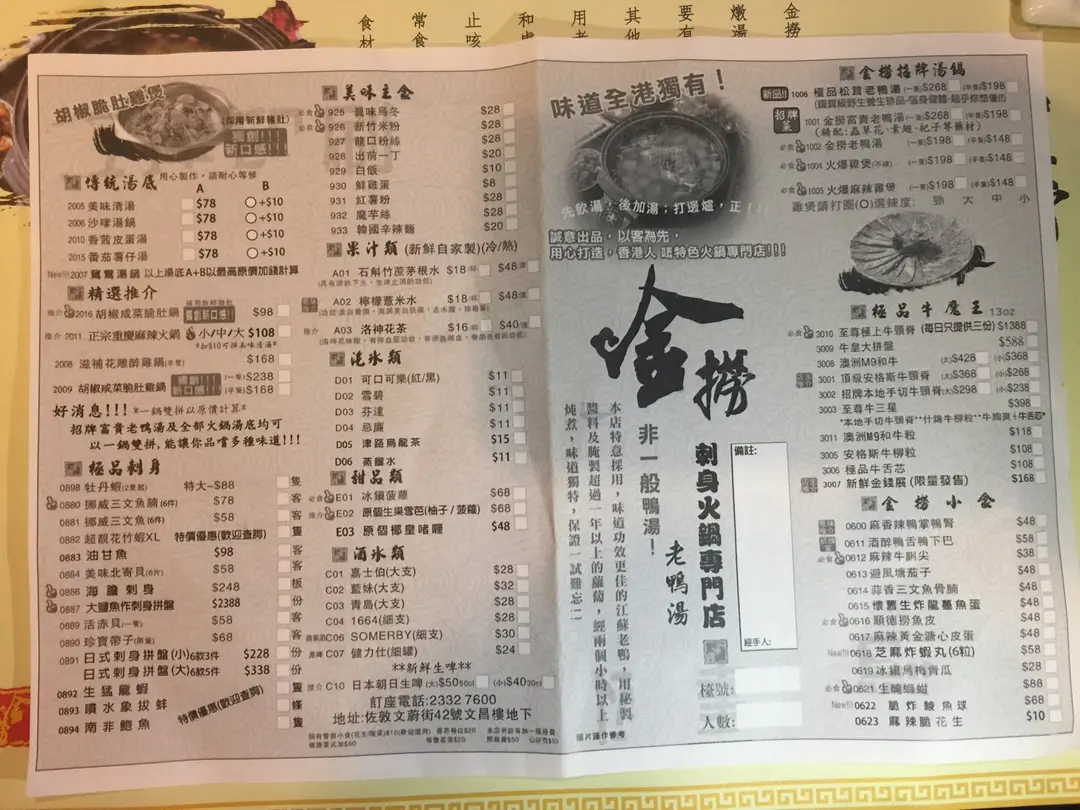 胡椒脆肚雞煲
(採用新鮮豬肚)
新口感!!!
傳統湯底 用心製作，請耐心等候
A B
2005 美味清湯 $78 +$10
2006 沙嗲湯鍋 $78 +$10
2010 香茜皮蛋湯 $78 +$10
2015 番茄薯仔湯 $78 +$10
New!!! 2007 鴛鴦湯鍋 以上湯底A+B以最高原價加錢計算
精選推介
推介 2016 胡椒咸菜脆肚鍋 $98
推介 2011 正宗重慶麻辣火鍋 小/中/大 $108
*加$10可拼美味清湯*
2008 滋補花雕醉雞鍋(半隻) $168
2009 胡椒咸菜脆肚雞鍋 (一隻)$238
(半隻)$168
好消息!!! *一鍋雙拼以原價計算*
招牌富貴老鴨湯及全部火鍋湯底均可
以一鍋雙拼,能讓你品嚐多種味道!!!
極品刺身
0898 牡丹蝦(2隻起) 特大-$88 隻
0880 挪威三文魚腩(6件) $78 客
0881 挪威三文魚(6件) $58 客
0882 超靚花竹蝦XL 特價優惠(歡迎查詢) 隻
0883 油甘魚 $98 客
0884 美味北寄貝(6片) $58 客
0886 海膽刺身 $248 板
0887 大豐魚作刺身拼盤 $2388 份
0889 活赤貝(一隻) $58 客
0890 珍寶帶子(兩隻) $68 客
0891 日式刺身拼盤(小)6款3件 $228 份
日式刺身拼盤(大)6款5件 $338 份
0892 生猛龍蝦 隻
0893 噴水象拔蚌 特價優惠(歡迎查詢) 條
0894 南非鮑魚 隻
美味主食
必食 925 美味烏冬 $28
必食 926 新竹米粉 $28
927 龍口粉絲 $28
928 出前一丁 $20
929 白飯 $10
930 鮮雞蛋 $8
931 紅薯粉 $28
932 魔芋絲 $28
933 韓國辛辣麵 $20
果汁類 (新鮮自家製)(冷/熱)
A01 石斛竹蔗茅根水 $18/杯 $48/渣
A02 檸檬薏米水 $18/杯 $48/渣
推介 A03 洛神花茶 $16/杯 $40/渣
汽水類
D01 可口可樂(紅/黑) $11
D02 雪碧 $11
D03 芬達 $11
D04 忌廉 $11
D05 津路烏龍茶 $15
D06 蒸餾水 $11
甜品類
必食 E01 冰鎮菠蘿 $68
推介 E02 原個生果雪芭(柚子/菠蘿) $68
E03 原個椰皇啫喱 $48
酒水類
C01 嘉士伯(大支) $28
C02 藍妹(大支) $32
C03 青島(大支) $28
C04 1664(細支) $28
蘋果酒 C06 SOMERBY(細支) $30
黑啤 C07 健力仕(細罐) $24
**新鮮生啤**
推介 C10 日本朝日生啤 (大)$50 50cl (小)$40 30cl
訂座電話:2332 7600
地址:佐敦文蔚街42號文昌樓地下
味道全港獨有！
先飲湯，後加湯；打邊爐，正！！
誠意出品，以客為先，
用心打造，香港人 嘅特色火鍋專門店!!!
金撈
非一般鴨湯！
刺身火鍋專門店
老鴨湯
本店特意採用，味道功效更佳的江蘇老鴨，用秘製
醬料及醃製超過一年以上的蘿蔔，經兩個小時以上
燉煮，味道獨特，保證一試難忘！！
備註:
經手人:
檯號:
人數:
照片謹作參考
金撈招牌湯鍋
新品!! 1006 極品松茸老鴨湯(一隻)$268 (半隻)$198
招牌菜 1001 金撈富貴老鴨湯(一隻)$268 (半隻)$198
(精配:蟲草花,素翅,杞子等藥材)
必食 1002 金撈老鴨湯 (一隻)$198 (半隻)$148
必食 1004 火爆雞煲(不辣) (一隻)$198 (半隻)$148
必食 1005 火爆麻辣雞煲 (一隻)$198 (半隻)$148
雞煲請打圈(○)選辣度: 勁 大 中 小
極品牛魔王 13oz
必食 3010 至尊極上牛頸脊 (每日只提供三份) $1388
3009 牛皇大拼盤 $588
3008 澳洲M9和牛 (大)$428 (小)$368
3001 頂級安格斯牛頸脊 (大)$368 (小)$268
3002 招牌本地手切牛頸脊 (大)$298 (小)$238
3003 至尊牛三星 $398
*本地手切牛頸脊**什錦牛柳粒**牛胸爽+牛舌芯*
3011 澳洲M9和牛粒 $118
3005 安格斯牛柳粒 $108
3006 極品牛舌芯 $108
3007 新鮮金錢展 (限量發售) $168
金撈小食
0600 麻香辣鴨掌鴨腎 $48
0611 酒醉鴨舌鴨下巴 $58
必食 0612 麻辣牛脷尖 $38
0613 避風塘茄子 $48
0614 蒜香三文魚骨腩 $48
0615 懷舊生炸龍躉魚蛋 $48
必食 0616 順德撈魚皮 $48
0617 麻辣黃金溏心皮蛋 $48
New!!! 0618 芝麻炸蝦丸(6粒) $58
0619 冰鎮烏梅青瓜 $28
必食 0621 生醃蟛蜞 $88
New!! 0622 脆炸鯪魚球 $68
0623 麻辣脆花生 $10